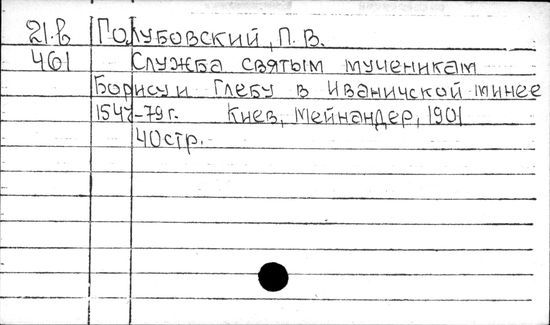 21.в Голубовский, П. В.
461 Служба святым мученикам
Борису и Глебу в Иваничской минее
1547-79 г. Киев, Мейнандер, 1901
40 стр.